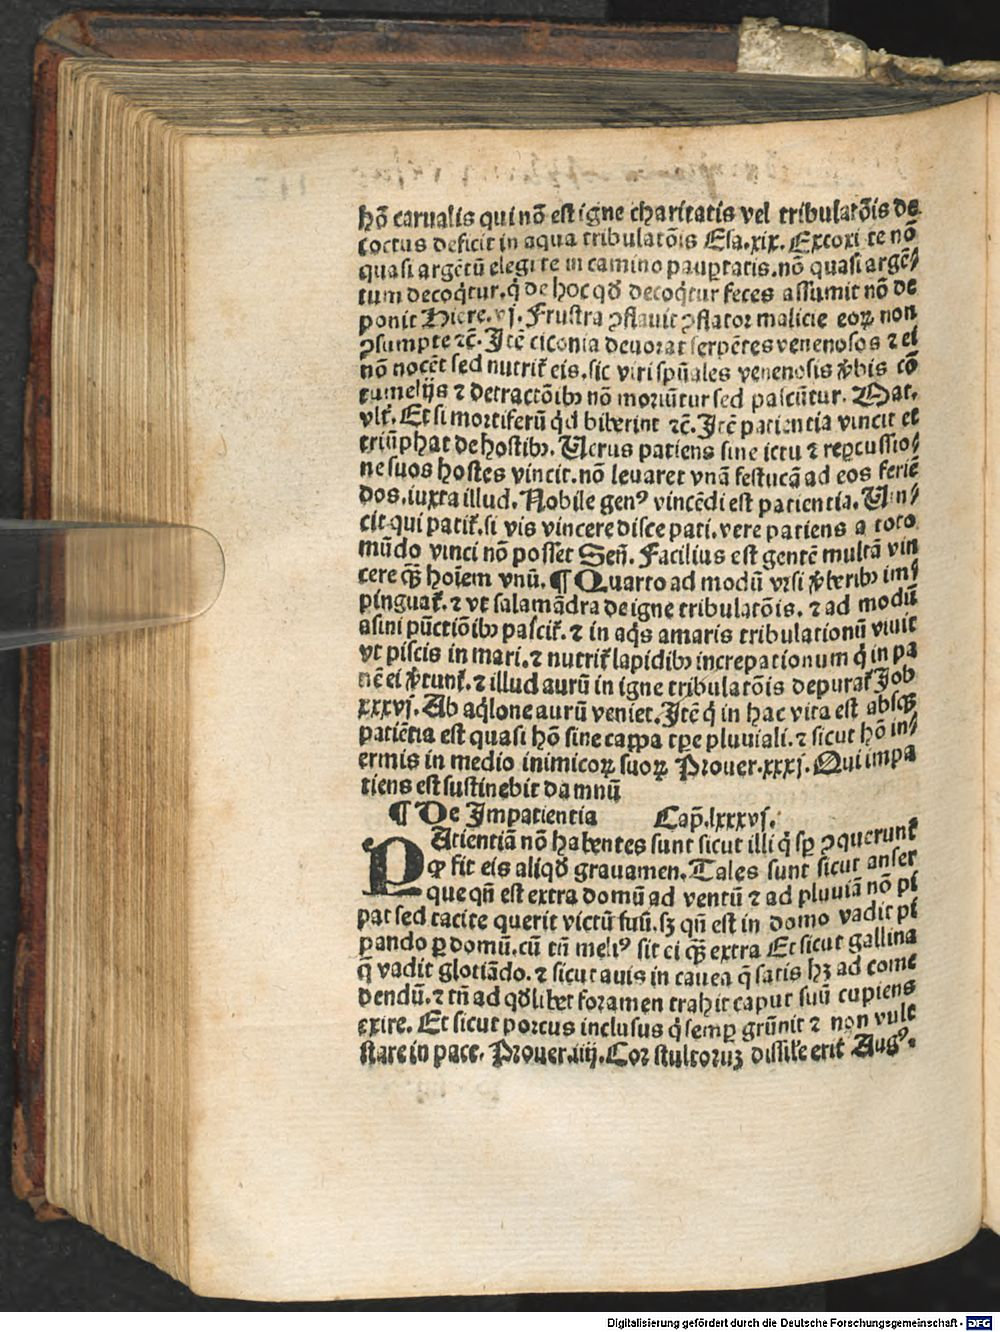 hō carnalis qui nō est igne charitatis vel tribulatōis de
coctus deficit in aqua tribulatōis Esa.xix. Excoxi te nō
quasi argētū elegi te in camino pauꝑtatis.nō quasi argē⸗
tum decoq̇tur.q̇ de hoc qd̄ decoq̇tur feces assumit nō de
ponit Hiere.vj. Frustra ꝯflauit ꝯflator malicie eoꝝ non
ꝯsumpte ⁊c̄. Itē ciconia deuorat serpētes venenosos ⁊ ei
nō nocēt sed nutrit᷑ eis.sic viri spūales venenosis v̓bis cō
tumelijs ⁊ detractōibꝰ nō moriūtur sed pascūtur. Mar.
vlt᷑. Et si mortiferū qd̓ biberint ⁊c̄. Itē patientia vincit et
triūphat de hostibꝰ. Uerus patiens sine ictu ⁊ reꝑcussio⸗
ne suos hostes vincit.nō leuaret vnā festucā ad eos feriē
dos.iuxta illud. Nobile genꝰ vincēdi est patientia. Uin⸗
cit qui patit᷑.si vis vincere disce pati.vere patiens a toto
mūdo vinci nō posset Sen̄. Facilius est gentē multā vin
cere qꝫ̄ hoīem vnū. ¶ Quarto ad modū vrsi v̓beribꝰ im⸗
pinguat᷑.⁊ vt salamādra de igne tribulatōis.⁊ ad modū
asini pūctiōibꝰ pascit᷑.⁊ in aq̇s amaris tribulationū viuit
vt piscis in mari.⁊ nutrit᷑ lapidibꝰ increpationum q̇ in pa
nē ei v̓tunt᷑.⁊ illud aurū in igne tribulatōis depurat᷑ Job
xxxvj. Ab aq̇lone aurū veniet. Itē q̇ in hac vita est absqꝫ
patiētia est quasi hō sine cappa tꝑe pluuiali.⁊ sicut hō in⸗
ermis in medio inimicoꝝ suoꝝ Prouer.xxxj. Qui impa
tiens est sustinebit damnū
¶ De Impatientia Cap̄.lxxxvj.
PAtientiā nō habentes sunt sicut illi q̇ sꝑ ꝯquerunt᷑
qꝛ fit eis aliqd̄ grauamen. Tales sunt sicut anser
que qn̄ est extra domū ad ventū ⁊ ad pluuiā nō pi
pat sed tacite querit victū suū.sꝫ qn̄ est in domo vadit pi
pando ꝑ domū.cū tn̄ meliꝰ sit ei qꝫ̄ extra Et sicut gallina
q̄ vadit glotiādo.⁊ sicut auis in cauea q̄ satis hꝫ ad come
dendū.⁊ tn̄ ad qd̄libet foramen trahit caput suū cupiens
exire. Et sicut porcus inclusus q̇ semꝑ grūnit ⁊ non vult
stare in pace. Prouer.iiij. Cor stultoruꝫ dissil̓e erit Augꝰ.
Digitalisierung gefördert durch die Deutsche Forschungsgemeinschaft - DFG